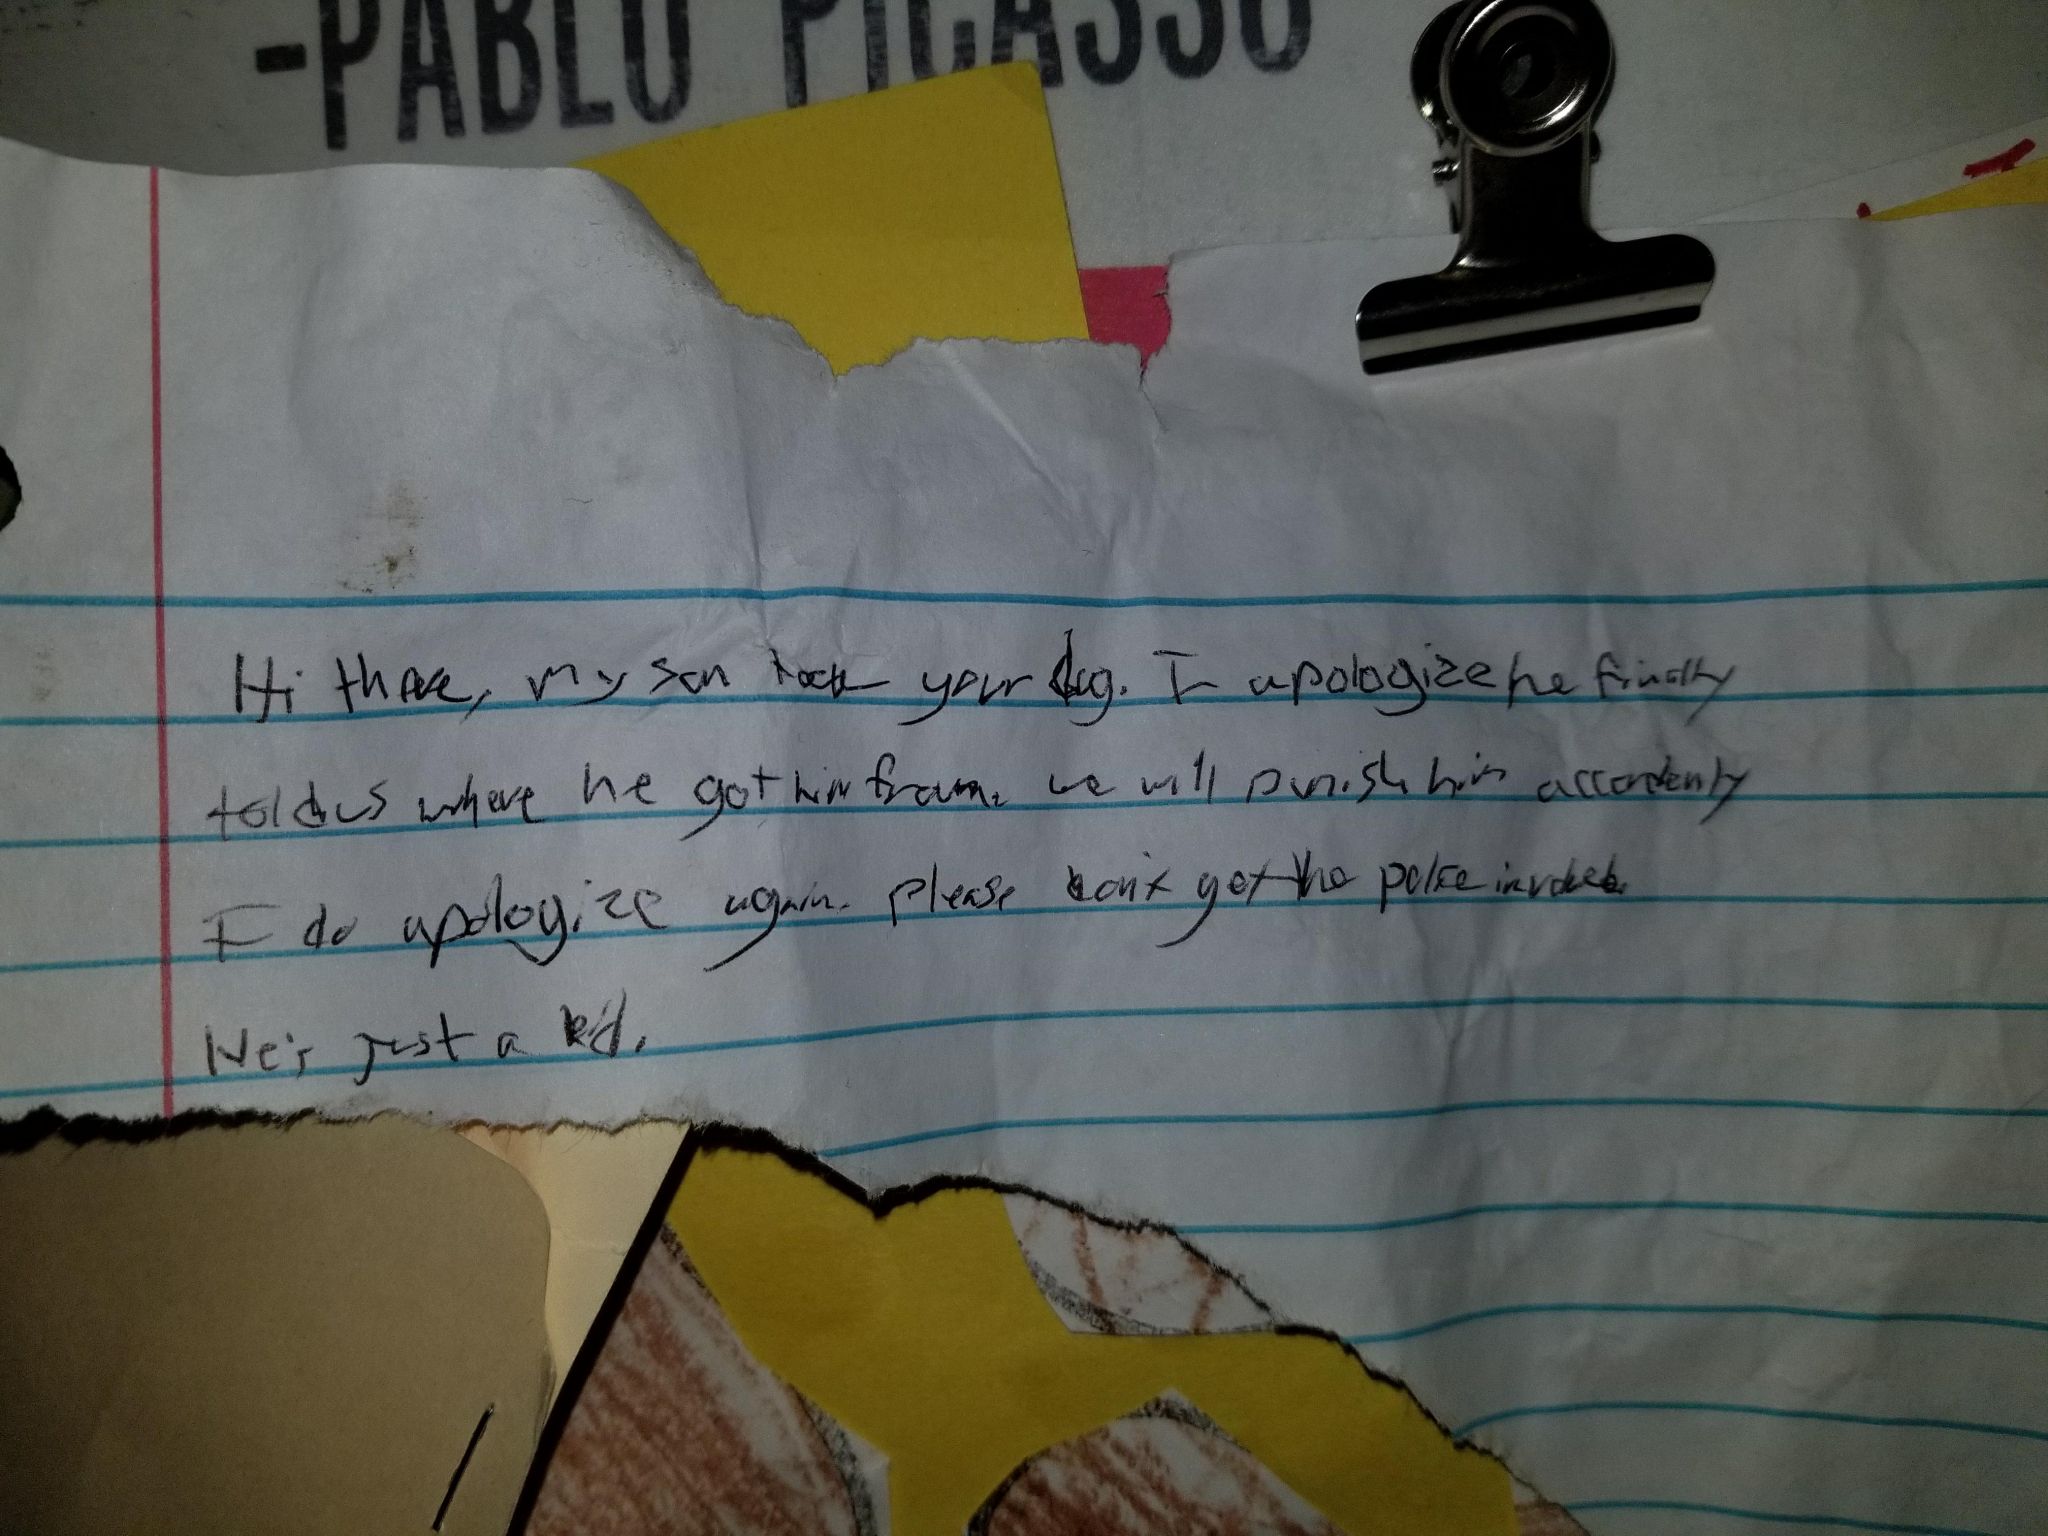 -PABLO PICASSO
Hi there, my son took your dog. I apologize he finally
told us where he got him from. we will punish him accordenly
I do apologize again. please don't get the police involved.
He's just a kid.